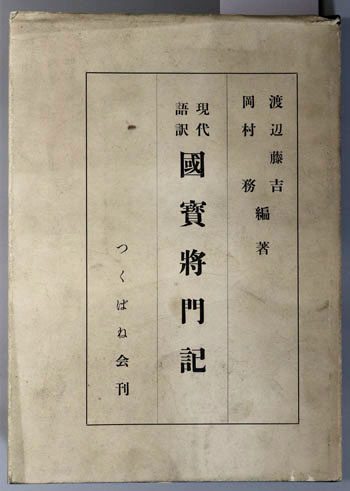 渡辺藤吉
岡村務編著
現代
語訳
國寳將門記
つくばね会刊